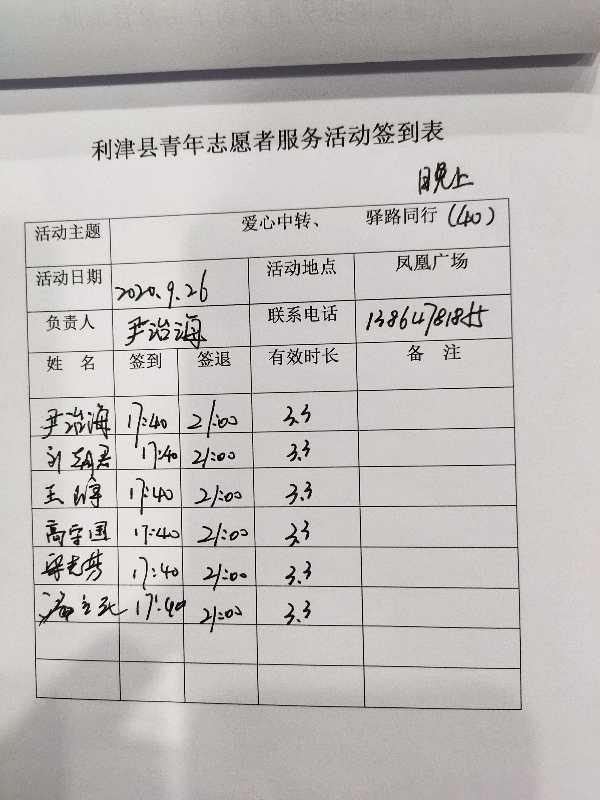 利津县青年志愿者服务活动签到表
晚上
活动主题 爱心中转、 驿路同行(40)
活动日期 2020.9.26 活动地点 凤凰广场
负责人 尹治海 联系电话 13864781855
姓 名 签到 签退 有效时长 备 注
尹治海 17:40 21:00 3.3
刘朝君 17:40 21:00 3.3
王 17:40 21:00 3.3
高学国 17:40 21:00 3.3
17:40 21:00 3.3
17:40 21:00 3.3